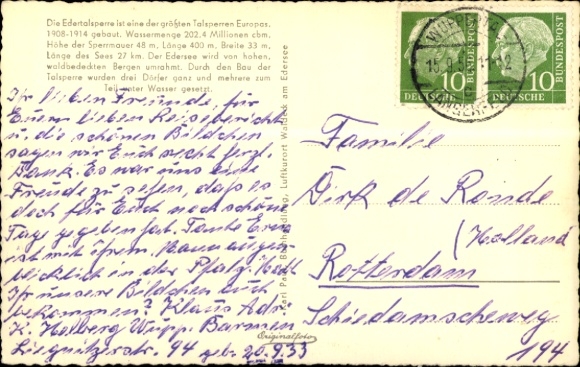 Die Edertalsperre ist eine der größten Talsperren Europas.
1908-1914 gebaut. Wassermenge 202,4 Millionen cbm.
Höhe der Sperrmauer 48 m, Länge 400 m, Breite 33 m,
Länge des Sees 27 km. Der Edersee wird von hohen,
waldbedeckten Bergen umrahmt. Durch den Bau der
Talsperre wurden drei Dörfer ganz und mehrere zum
Teil unter Wasser gesetzt.
Ihr lieben Freunde, für
Euren lieben Reisebericht
u. die schönen Bildchen
sagen wir Euch recht herzl.
Dank. Es war uns eine
Freude zu sehen, daß es
doch für Euch noch schöne
Tage gegeben hat. Tante
ist mit ihrem Mann augen-
blicklich in der Pfalz.
Ihr unsere Bildchen auch
bekommen? Klaus Adr.
K. Holberg Wupp. Barmen
Liegnitzerstr. 94 geb. 20.9.33
Buchhandlung, Luftkurort Waldeck am Edersee
Originalfoto
WUPPERTAL
15.9.5
10
DEUTSCHE BUNDESPOST
10
DEUTSCHE BUNDESPOST
Familie
Dirk de Ronde
(Holland
Rotterdam
Schiedamscheweg
194